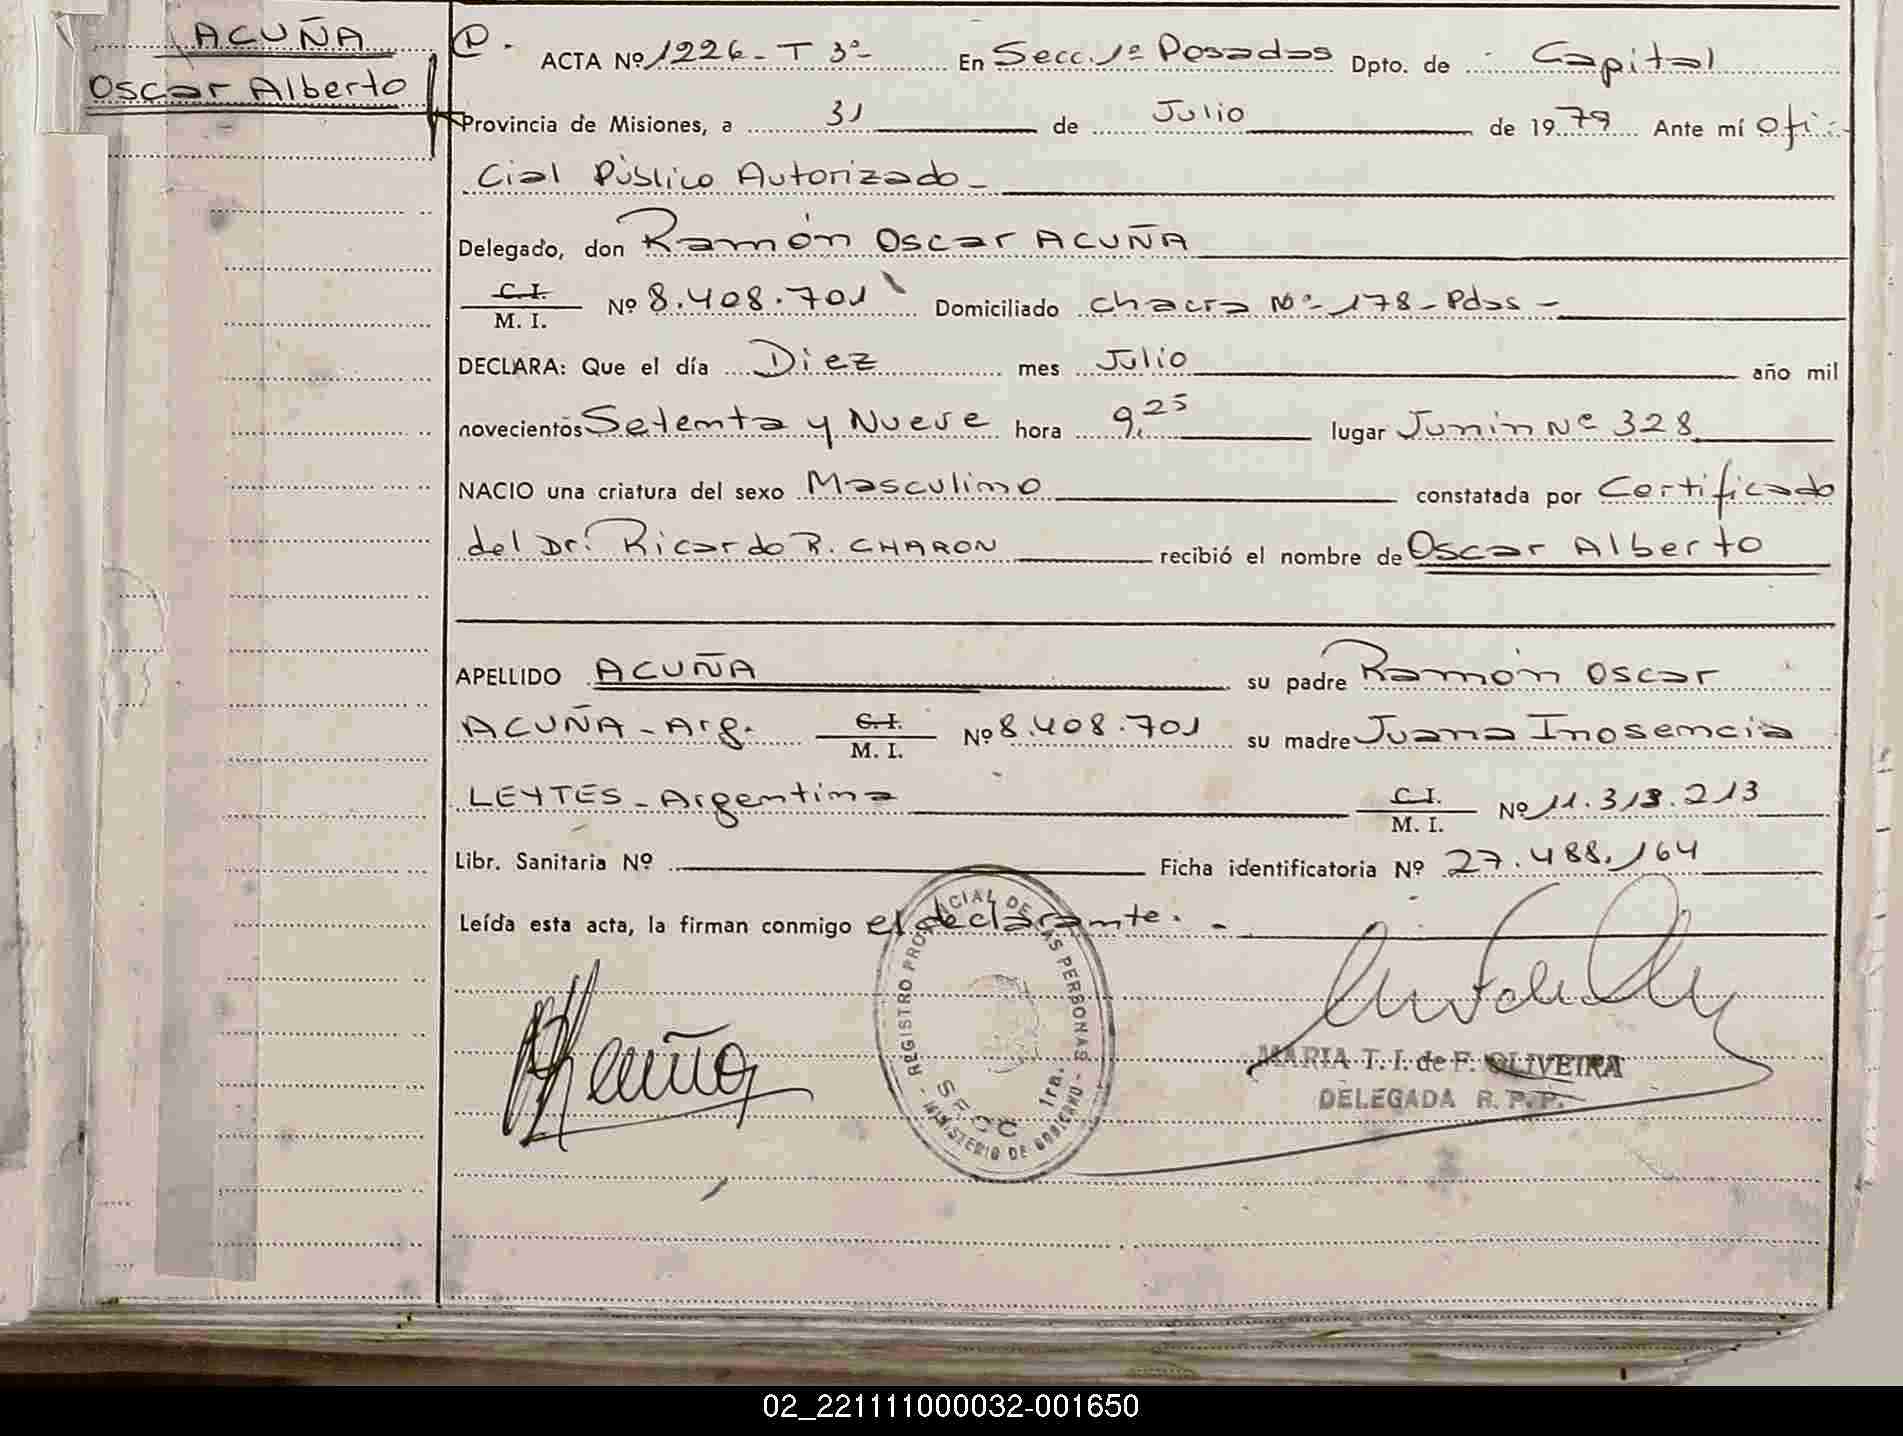 ACUÑA
Oscar Alberto
P. ACTA Nº 1226 - T 3º - En Secc. 1ª Posadas Dpto. de Capital
Provincia de Misiones, a 31 de Julio de 1979 Ante mí Ofi-
cial Público Autorizado -
Delegado, don Ramón Oscar ACUÑA
C. I. / M. I. Nº 8.408.701 Domiciliado chacra Nº 178 - Pdas -
DECLARA: Que el día Diez mes Julio año mil
novecientos Setenta y Nueve hora 9,25 lugar Junin Nº 328
NACIO una criatura del sexo Masculino constatada por Certificado
del Dr. Ricardo R. CHARON recibió el nombre de Oscar Alberto
APELLIDO ACUÑA su padre Ramón Oscar
ACUÑA - Arg. C. I. / M. I. Nº 8.408.701 su madre Juana Inosencia
LEYTES - Argentina C. I. / M. I. Nº 11.313.213
Libr. Sanitaria Nº Ficha identificatoria Nº 27.488.164
Leída esta acta, la firman conmigo el declarante. -
Acuña
REGISTRO PROVINCIAL DE LAS PERSONAS - MINISTERIO DE GOBIERNO -
S R C C 1ra.
MARIA T. I. de F. OLIVEIRA
DELEGADA R. P. P.
02_221111000032-001650